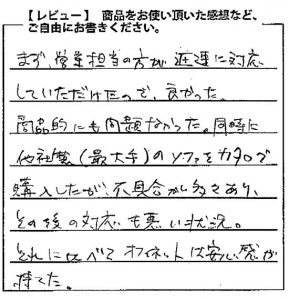 【レビュー】 商品をお使い頂いた感想など、
ご自由にお書きください。
まず、営業担当の方が迅速に対応
していただけたので、良かった。
商品的にも問題なかった。同時に
他社製(最大手)のソファをカタログで
購入したが、不具合が多々あり、
その後の対応も悪い状況。
それに比べてオフィネットは安心感が
持てた。